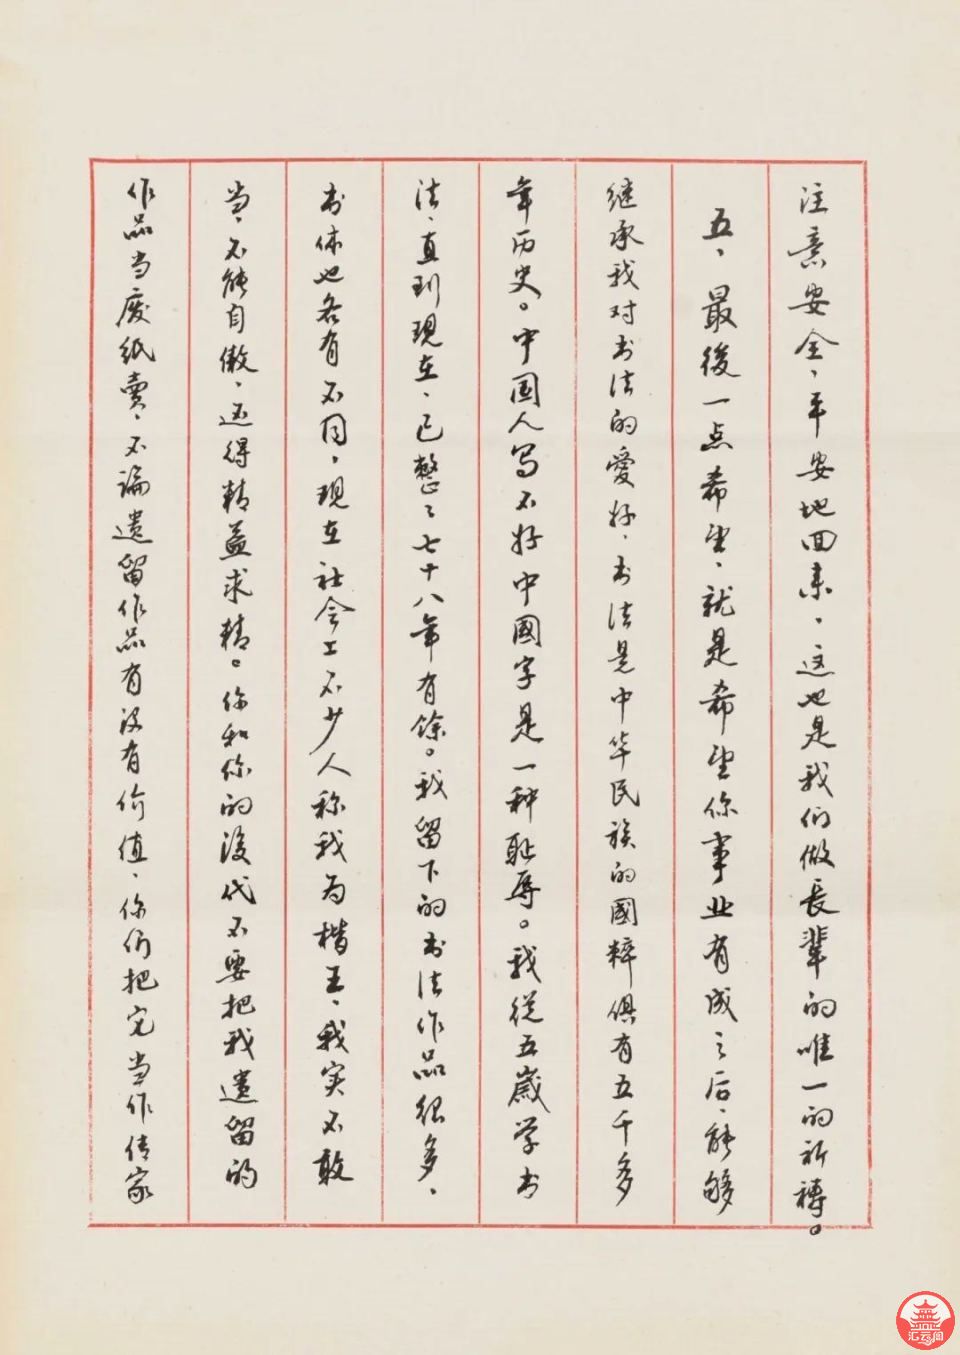 注意安全，平安地回来，这也是我们做长辈的唯一的祈祷。
五、最後一点希望，就是希望你事业有成之后，能够
继承我对书法的爱好，书法是中华民族的國粹俱有五千多
年历史。中國人写不好中國字是一种耻辱。我從五歲学书
法，直到现在，已整整七十八年有馀。我留下的书法作品很多，
书体也各有不同，现在社会上不少人称我为楷王，我实不敢
当，不能自傲，还得精益求精。你和你的後代不要把我遗留的
作品当废纸卖，不论遗留作品有没有价值，你们把它当作传家
汇云阁